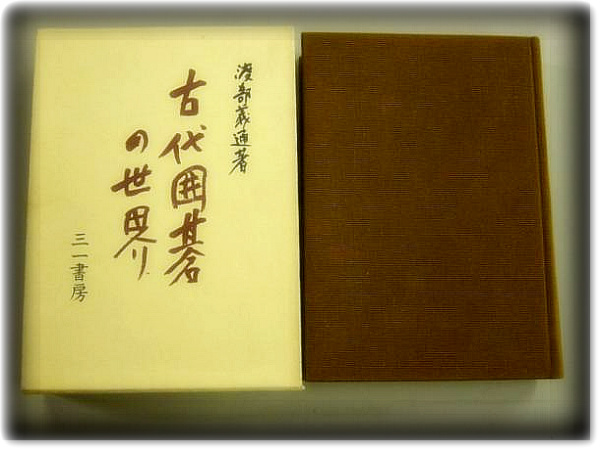 渡部義通著
古代囲碁
の世界
三一書房